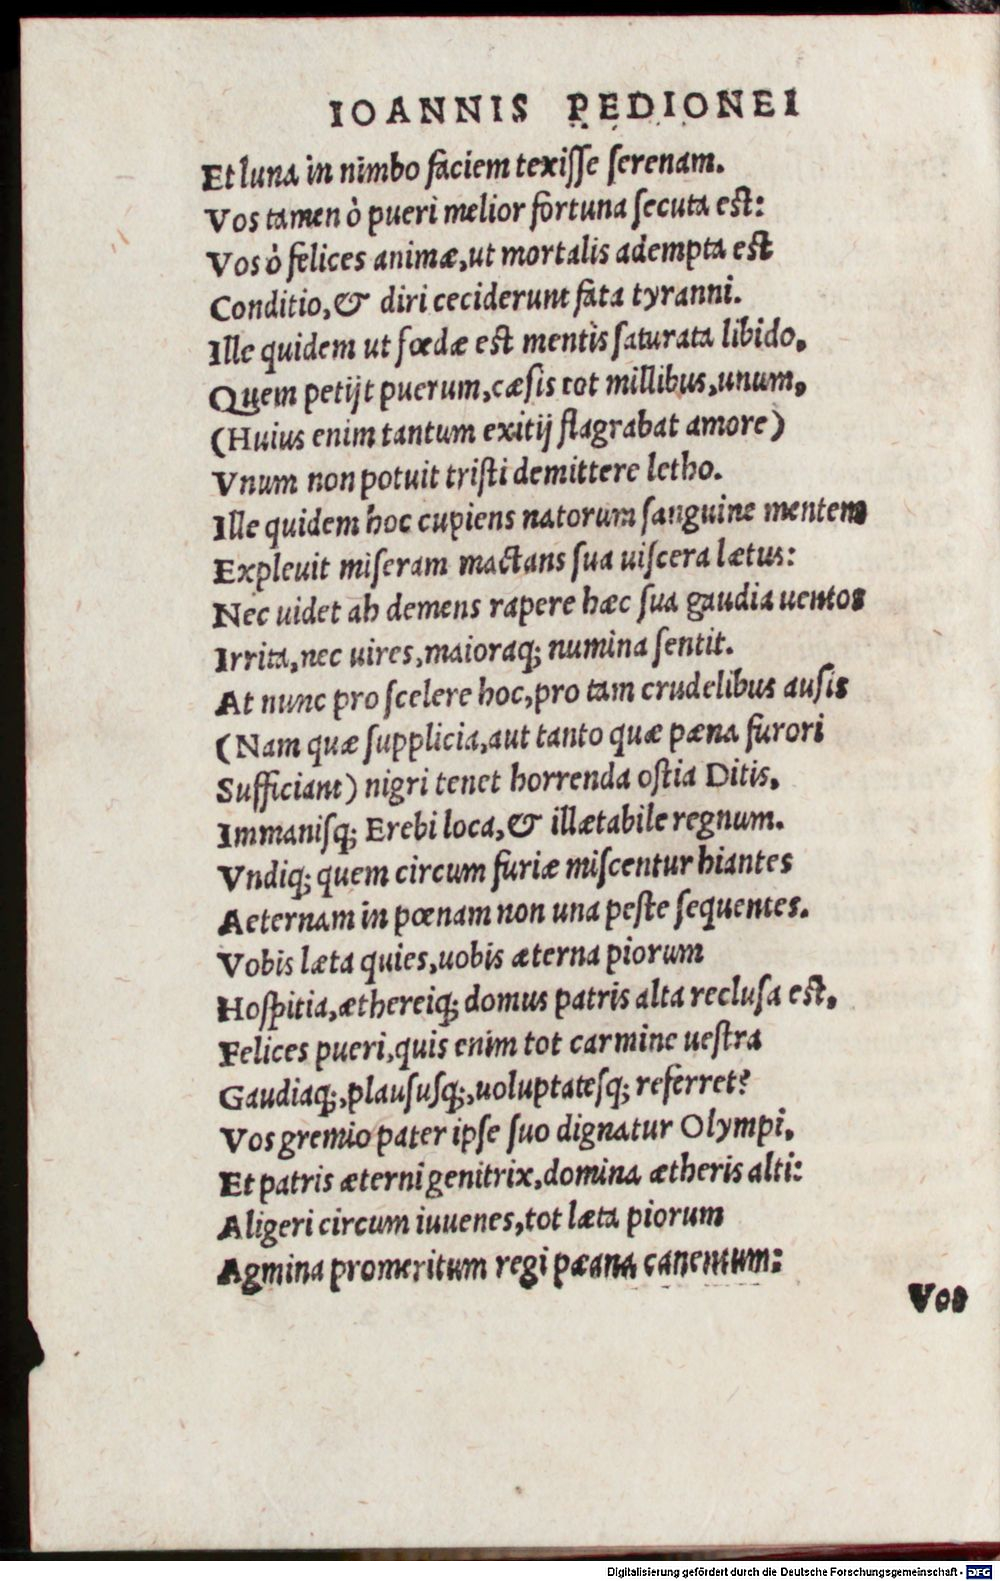 IOANNIS PEDIONEI
Et luna in nimbo faciem texiſſe ſerenam.
Vos tamen ò pueri melior fortuna ſecuta est:
Vos ò felices animæ, ut mortalis adempta est
Conditio, & diri ceciderunt fata tyranni.
Ille quidem ut fœdæ est mentis ſaturata libido,
Quem petijt puerum, cæſis tot millibus, unum,
(Huius enim tantum exitij flagrabat amore)
Vnum non potuit triſti demittere letho.
Ille quidem hoc cupiens natorum ſanguine mentem
Expleuit miſeram mactans ſua uiſcera lætus:
Nec uidet ah demens rapere hæc ſua gaudia uentos
Irrita, nec uires, maioraq; numina ſentit.
At nunc pro ſcelere hoc, pro tam crudelibus auſis
(Nam quæ ſupplicia, aut tanto quæ pæna furori
Sufficiant) nigri tenet horrenda oſtia Ditis,
Immaniſq; Erebi loca, & illætabile regnum.
Vndiq; quem circum furiæ miſcentur hiantes
Aeternam in pœnam non una peſte ſequentes.
Vobis læta quies, uobis æterna piorum
Hoſpitia, æthereiq; domus patris alta recluſa est,
Felices pueri, quis enim tot carmine ueſtra
Gaudiaq;, plauſuſq;, uoluptateſq; referret?
Vos gremio pater ipſe ſuo dignatur Olympi,
Et patris æterni genitrix, domina ætheris alti:
Aligeri circum iuuenes, tot læta piorum
Agmina promeritum regi pæana canentum:
Vos
Digitalisierung gefördert durch die Deutsche Forschungsgemeinschaft - DFG